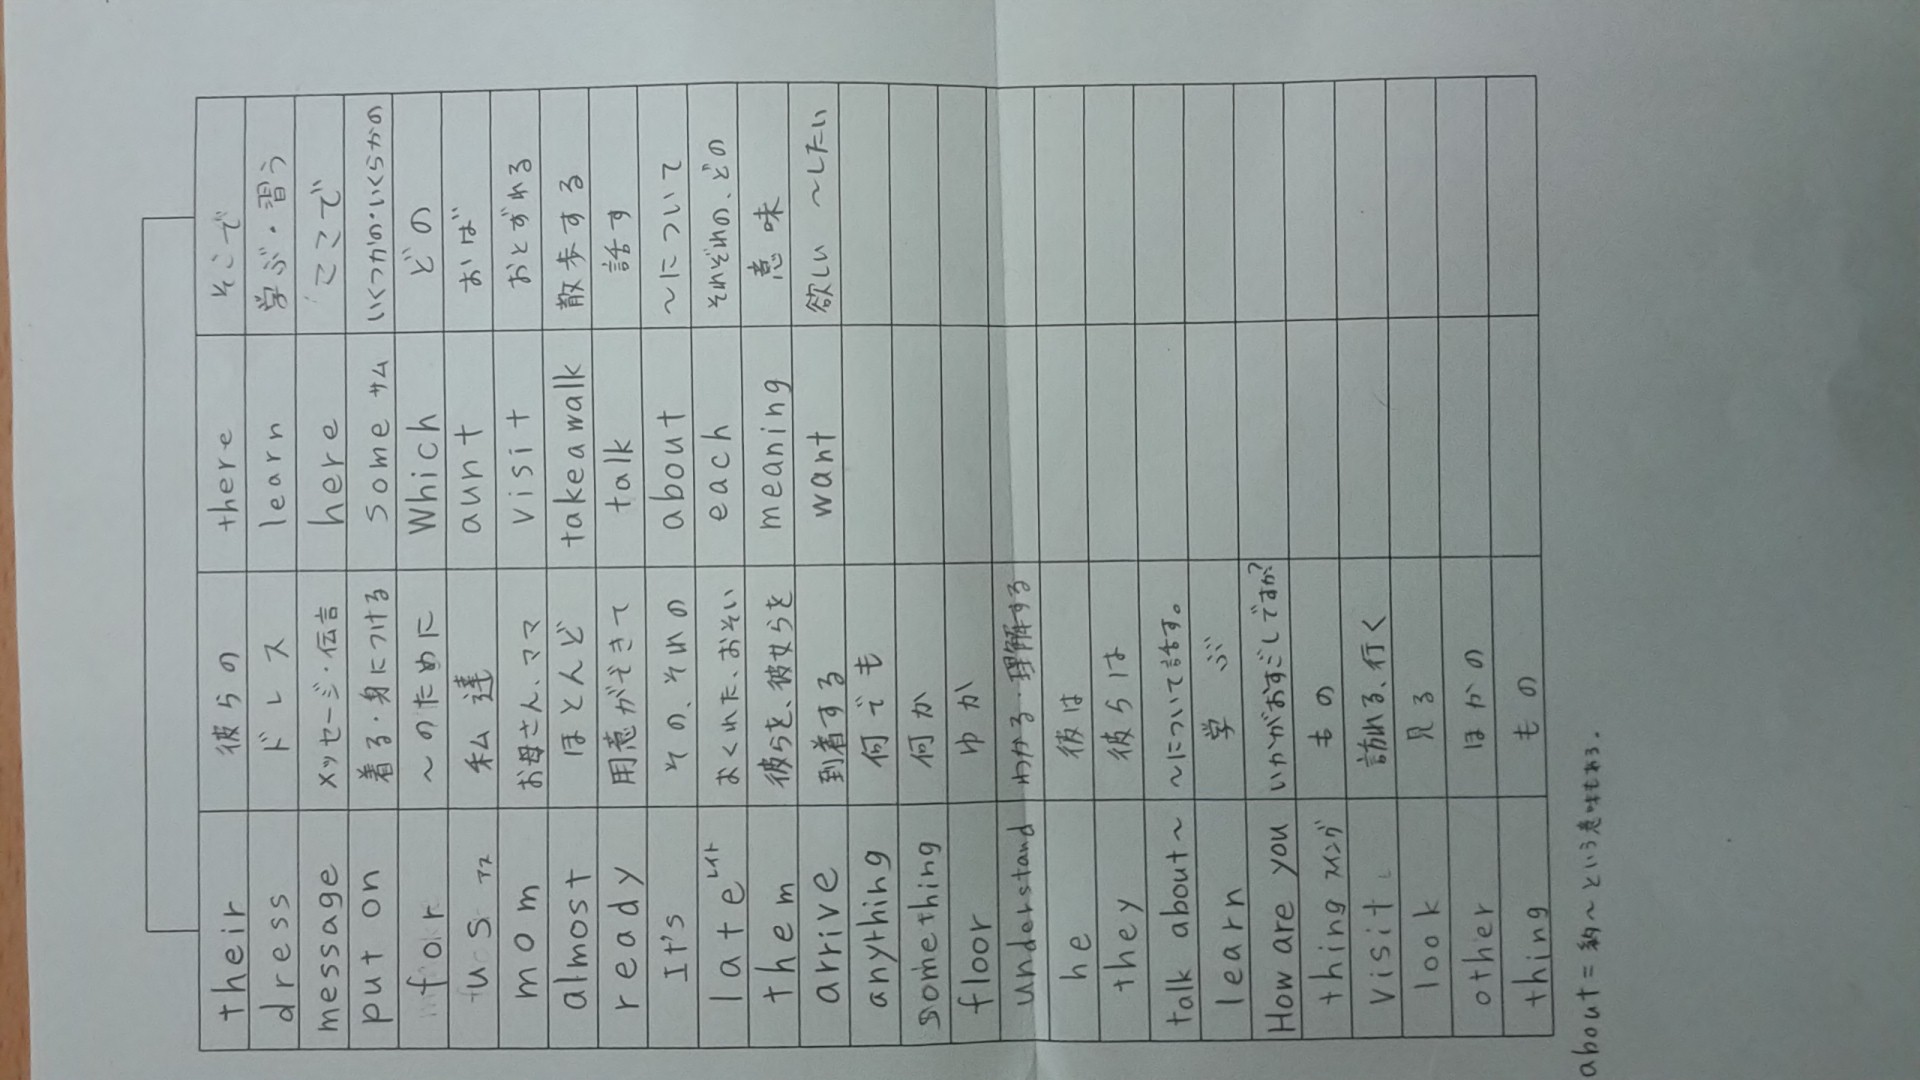 their 彼らの there そこで
dress ドレス learn 学ぶ・習う
message メッセージ・伝言 here ここで
put on 着る・身につける some サム いくつかの・いくらかの
for ～のために Which どの
us アス 私達 aunt おば
mom お母さん、ママ visit おとずれる
almost ほとんど takeawalk 散歩する
ready 用意ができて talk 話す
It's その、それの about ～について
late レイト おくれた、おそい each それぞれの、どの
them 彼らを、彼女らを meaning 意味
arrive 到着する want 欲しい ～したい
anything 何でも
something 何か
floor ゆか
understand わかる・理解する
he 彼は
they 彼らは
talk about～ ～について話す。
learn 学ぶ
How are you いかがおすごしですか?
thing スイング もの
visit 訪れる、行く
look 見る
other ほかの
thing もの
about = 約～という意味もある.